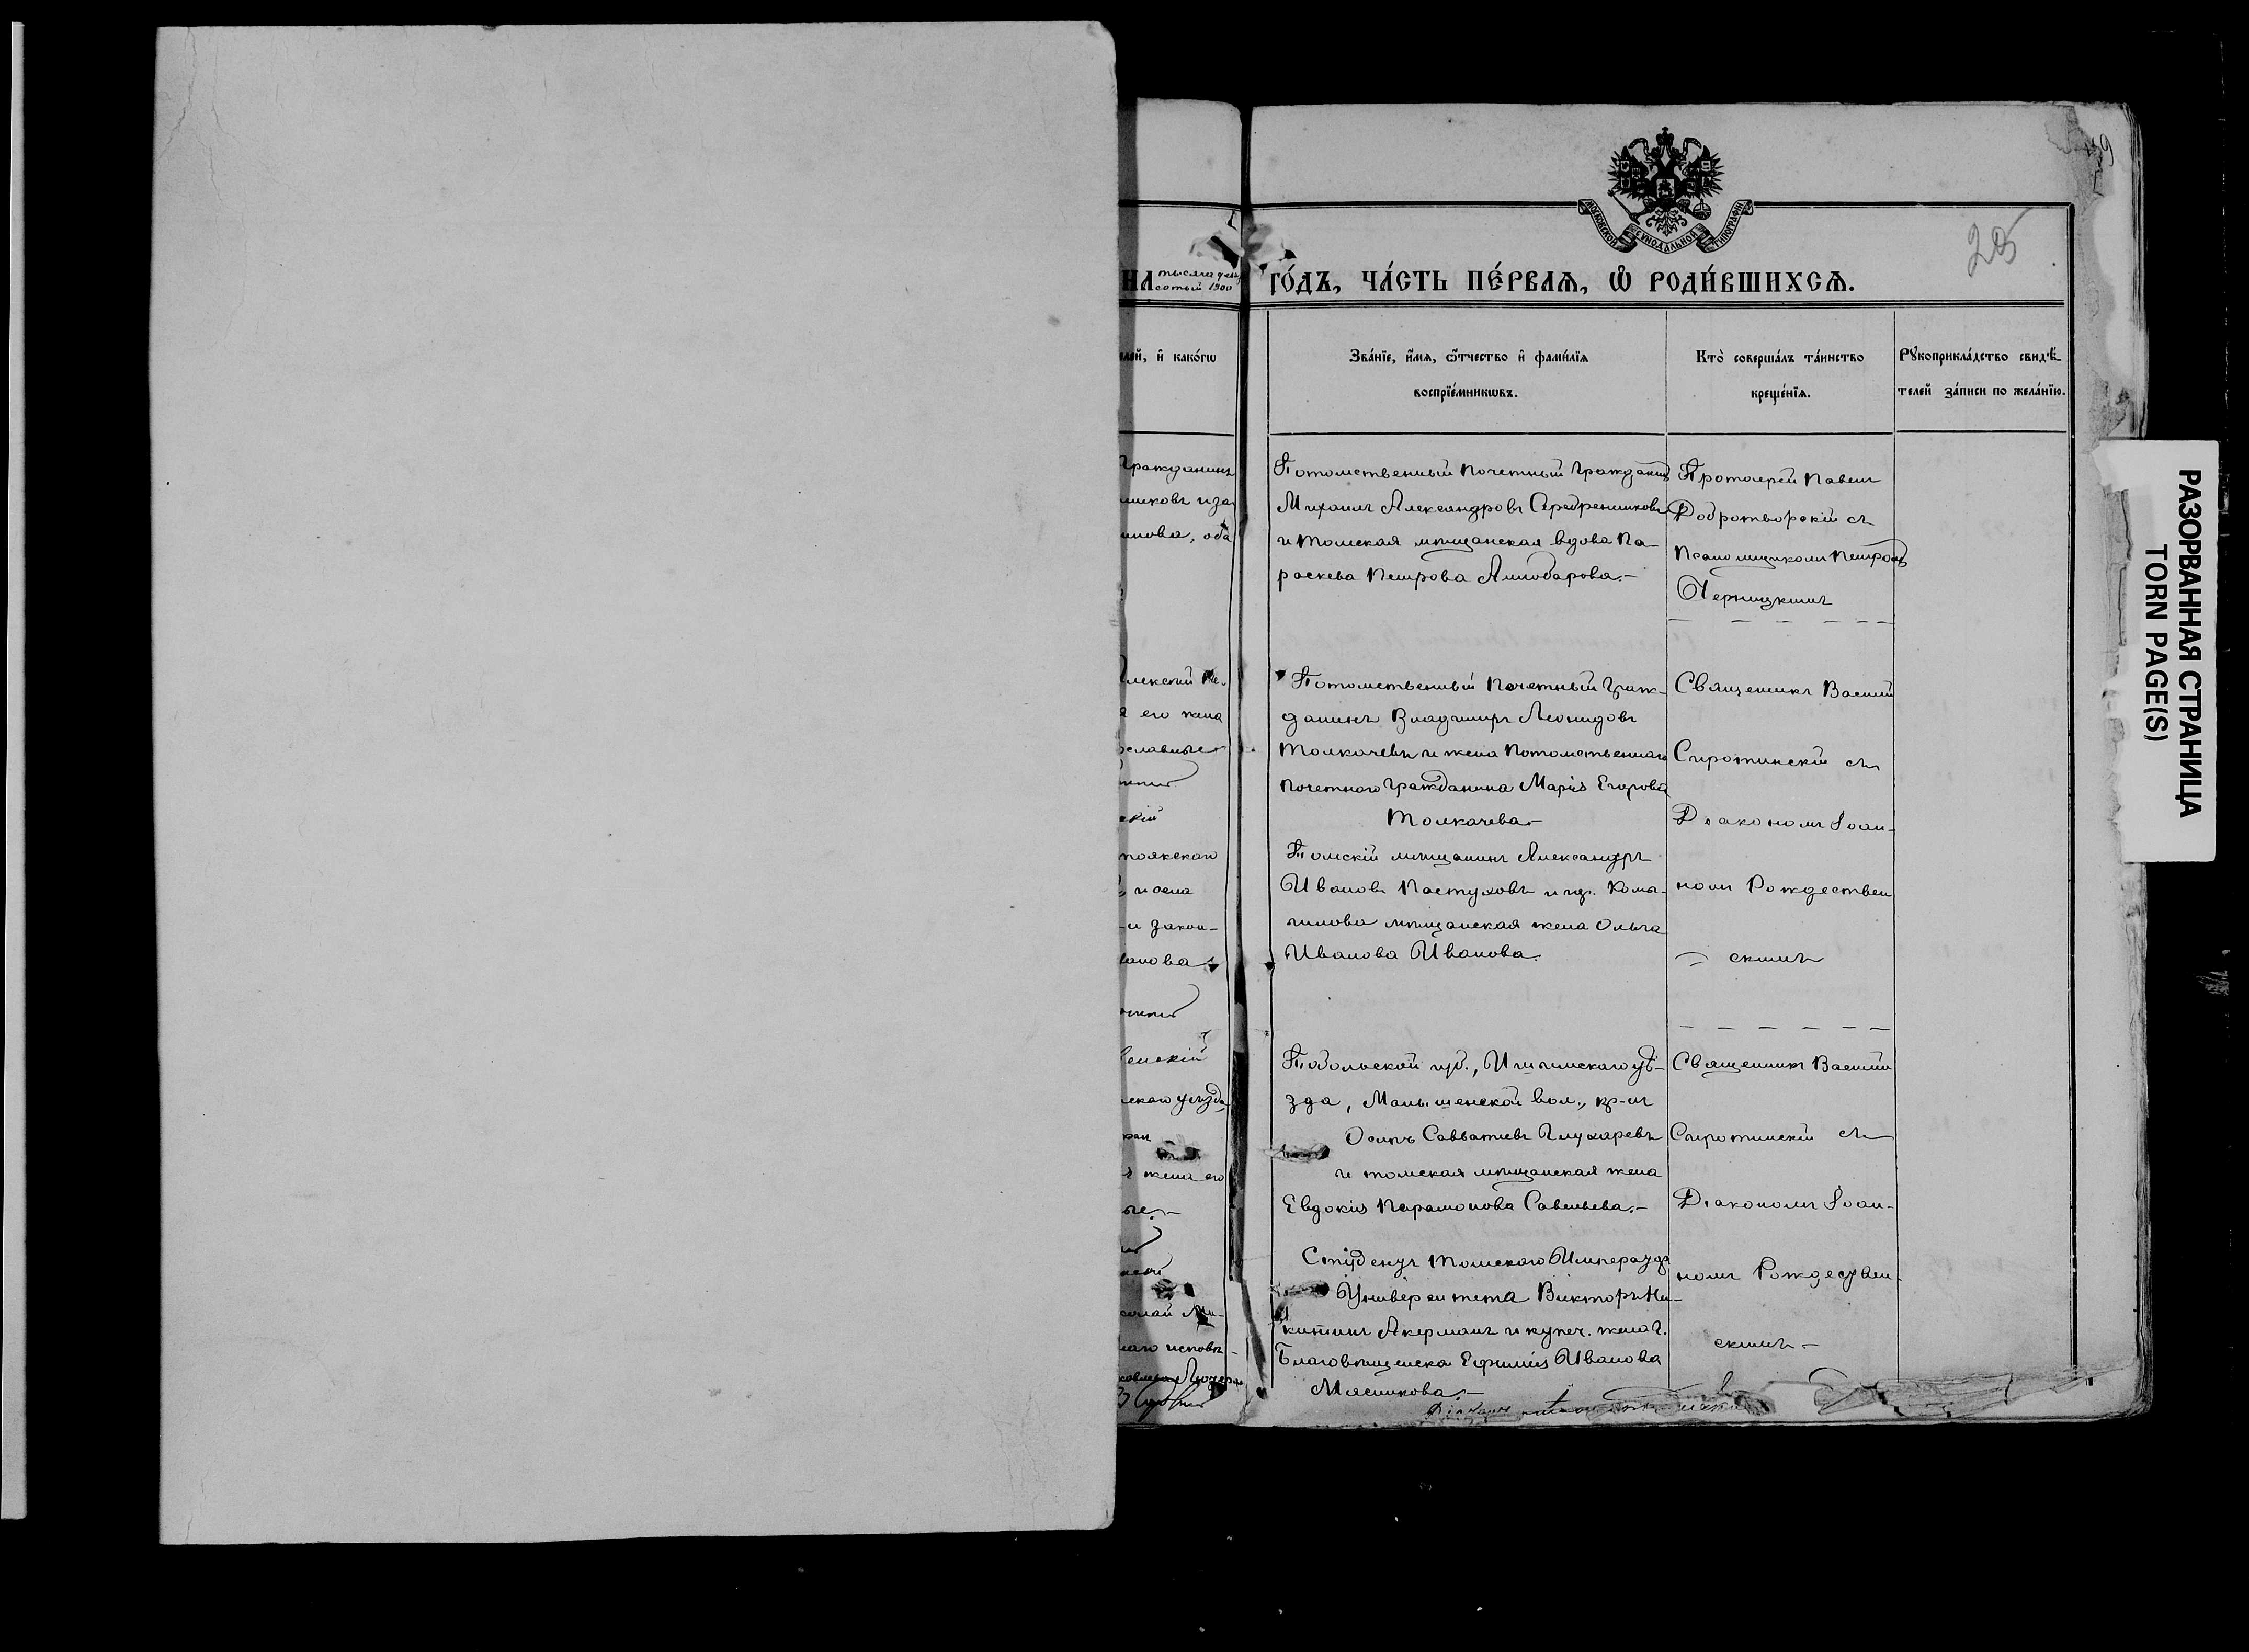 49
МОСКОВСКОЙ СѴНОДАЛЬНОЙ ТИПОГРАФІИ
25
НА тысяча дев
сотый 1900
ГО́ДЪ, ЧА́СТЬ ПЕ́РВАѦ, Ѽ РОДИ́ВШИХСѦ.
лей, и҆ како́гѡ
Зва́нїе, и҆́мѧ, ѻ҆́тчество и҆ фами́лїѧ
воспрїе́мникѡвъ.
Кто̀ соверша́лъ та́инство
креще́нїѧ.
Рꙋкоприкла́дство свидѣ́-
телей за́писи по жела́нїю.
гражданинъ
никовъ и за
нова, оба
Потомственный почетный гражданинъ
Михаилъ Александровъ Серебренниковъ
и томская мѣщанская вдова Па-
раскева Петрова
Протоіерей Павелъ
Добротворскій съ
Псаломщикомъ Петромъ
Черницкимъ
лексѣй
его жена
ославные
скій
и закон-
анова
Потомственный почетный граж-
данинъ Владимиръ Леонидовъ
Толкачевъ и жена потомственнаго
почетнаго гражданина Марія Егорова
Толкачева.-
Томскій мѣщанинъ Александръ
Ивановъ Пастуховъ и гр. Колы-
ванова мѣщанская жена Ольга
Иванова Иванова.
Священникъ Василій
Сиротинскій съ
Діакономъ Іоан-
номъ Рождествен
скимъ
венскій
скаго уѣзда
жена его
ые.-
колай
наго исповѣ-
Тобольской губ., Ишимскаго уѣ-
зда, Малышенской вол., кр-нъ
Осипъ Савватіевъ Глухаревъ
и томская мѣщанская жена
Евдокія Парамонова Савельева.-
Студентъ Томскаго Императ.
Университета Викторъ Ни-
китинъ Акерманъ и купеч. жена г.
Благовѣщенска Ефимія Иванова
Мясникова.-
Священникъ Василій
Сиротинскій съ
Діакономъ Іоан-
номъ Рождествен-
скимъ-
РАЗОРВАННАЯ СТРАНИЦА
TORN PAGE(S)